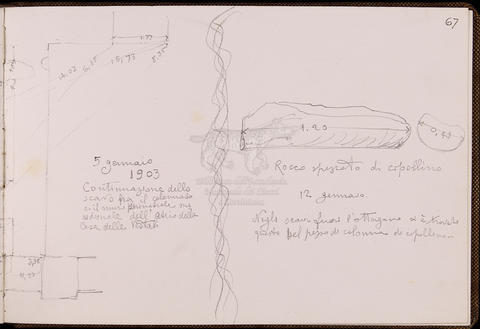 67
1.77
14.03 6.35 15,73 8.35
1.20
0,48
5 gennaio
1903
Continuazione dello
scavo fra il colonnato
e il muro perimetrale me
ridionale dell'Atrio della
Casa delle Vestali
Rocco spezzato di cipollino
12 gennaio
Negli scavi l'ottagono si è trovato
questo bel pezzo di colonna di cipollino